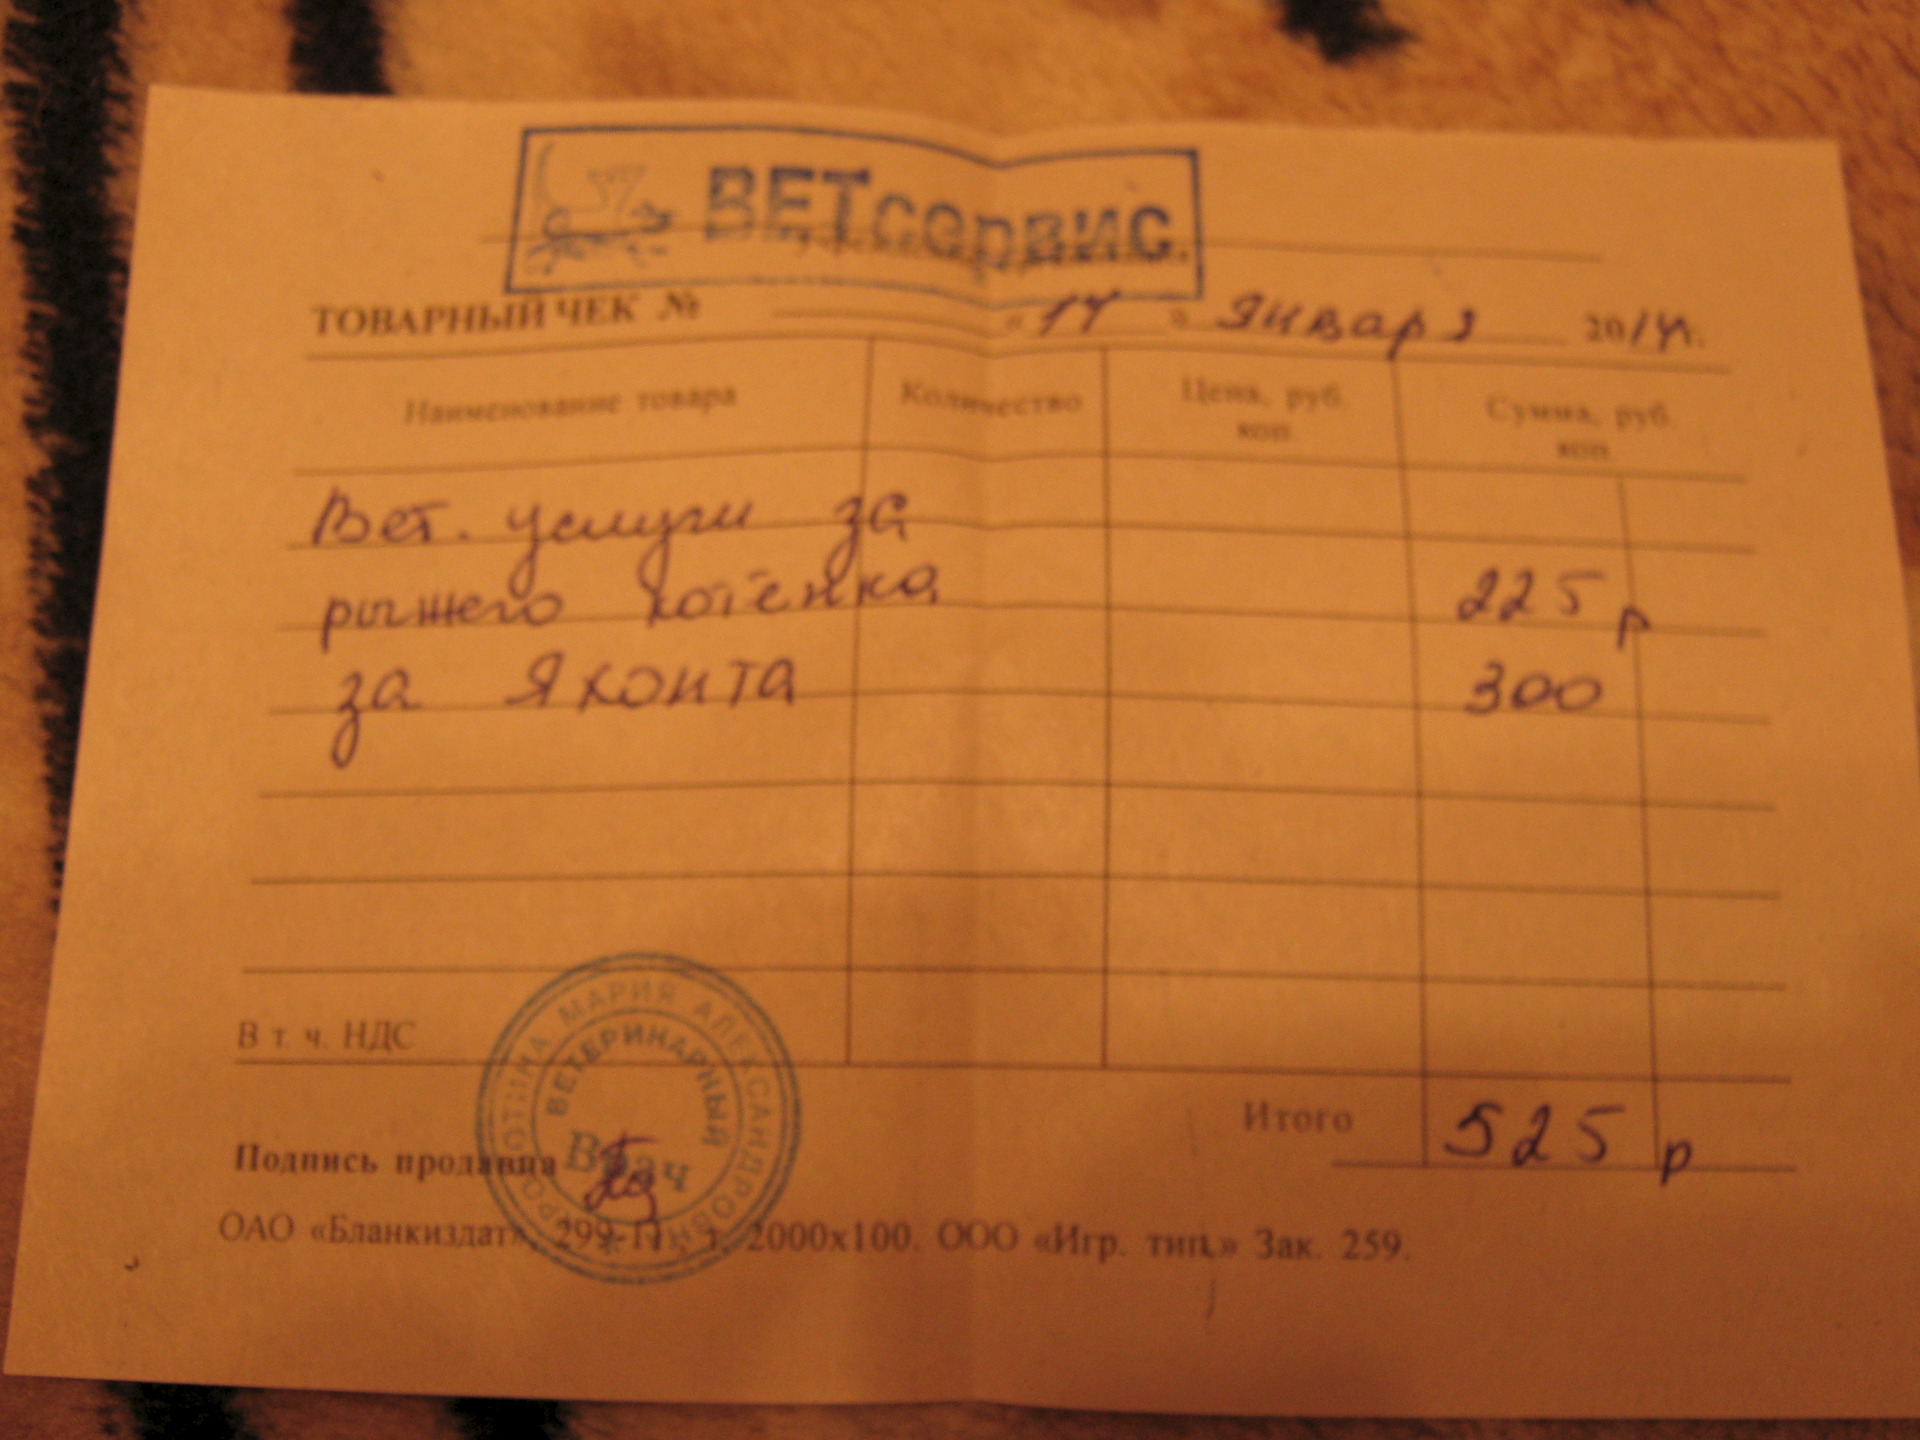 ВЕТсервис.
ТОВАРНЫЙ ЧЕК № « » января 2014г.
Наименование товара Количество Цена, руб. коп. Сумма, руб. коп.
Вет. услуги за
рыжего котёнка 225 р
за Яхонта 300
В т. ч. НДС
МАРИЯ АЛЕКСАНДРОВНА
ВЕТЕРИНАРНЫЙ
Врач
Итого 525 р
Подпись продавца
ОАО «Бланкиздат», 299-П, т. 2000х100. ООО «Игр. тип.» Зак. 259.